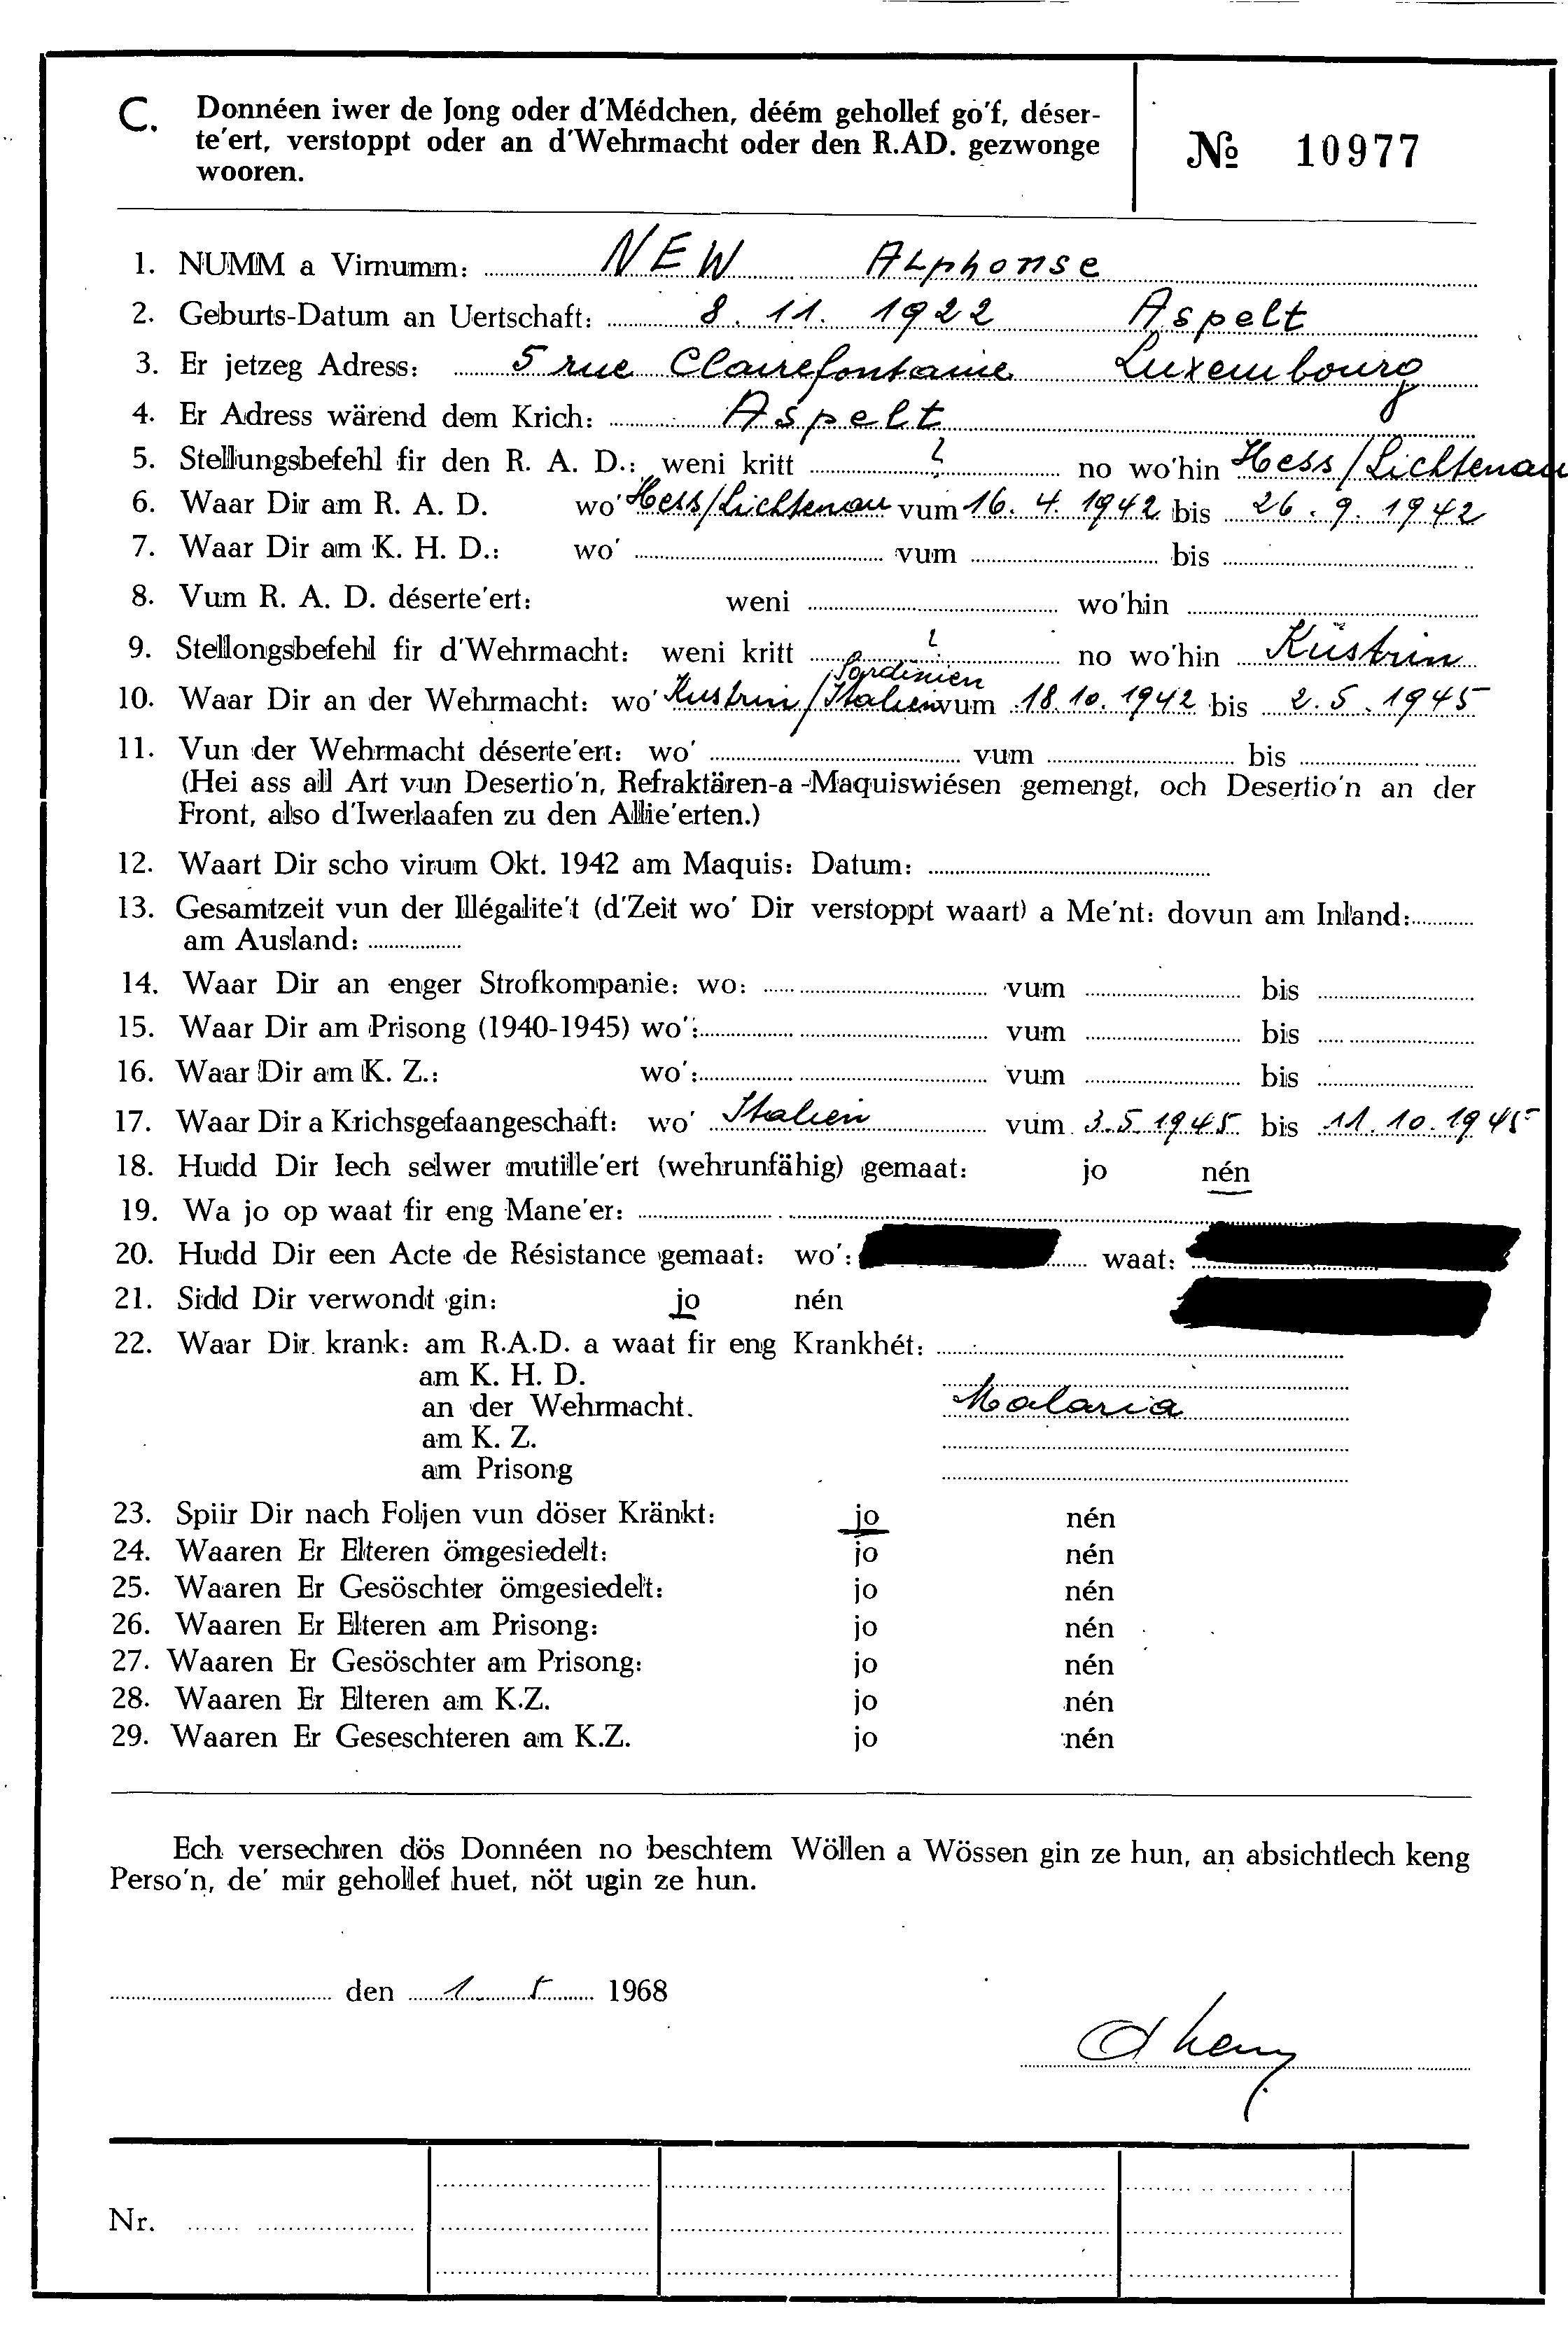 C. Donnéen iwer de Jong oder d'Médchen, déém gehollef go'f, déser-
te'ert, verstoppt oder an d'Wehrmacht oder den R.AD. gezwonge
wooren.
№ 10977
1. NUMM a Virnumm: NEW ALphonse
2. Geburts-Datum an Uertschaft: 8. 11. 1922 Aspelt
3. Er jetzeg Adress: 5 rue Clairefontaine Luxembourg
4. Er Adress wärend dem Krich: Aspelt
5. Stellungsbefehl fir den R. A. D.: weni kritt ? no wo'hin Hess/Lichtenau
6. Waar Dir am R. A. D. wo' Hess/Lichtenau vum 16. 4. 1942 bis 26. 9. 1942
7. Waar Dir am K. H. D.: wo' vum bis
8. Vum R. A. D. déserte'ert: weni wo'hin
9. Stellongsbefehl fir d'Wehrmacht: weni kritt ? no wo'hin Küstrin
Sardinien
10. Waar Dir an der Wehrmacht: wo' Kustrin/Italien vum 18.10.1942 bis 2.5.1945
11. Vun der Wehrmacht déserte'ert: wo' vum bis
(Hei ass all Art vun Desertio'n, Refraktären-a-Maquiswiésen gemengt, och Desertio'n an der
Front, also d'Iwerlaafen zu den Allie'erten.)
12. Waart Dir scho virum Okt. 1942 am Maquis: Datum:
13. Gesamtzeit vun der Illégalite't (d'Zeit wo' Dir verstoppt waart) a Me'nt: dovun am Inland:
am Ausland:
14. Waar Dir an enger Strofkompanie: wo: vum bis
15. Waar Dir am Prisong (1940-1945) wo': vum bis
16. Waar Dir am K. Z.: wo': vum bis
17. Waar Dir a Krichsgefaangeschaft: wo' Italien vum 3.5.1945 bis 11.10.1945
18. Hudd Dir Iech selwer mutille'ert (wehrunfähig) gemaat: jo nén
19. Wa jo op waat fir eng Mane'er:
20. Hudd Dir een Acte de Résistance gemaat: wo': waat:
21. Sidd Dir verwondt gin: jo nén
22. Waar Dir krank: am R.A.D. a waat fir eng Krankhét:
am K. H. D.
an der Wehrmacht. Malaria
am K. Z.
am Prisong
23. Spiir Dir nach Foljen vun döser Kränkt: jo nén
24. Waaren Er Elteren ömgesiedelt: jo nén
25. Waaren Er Gesöschter ömgesiedelt: jo nén
26. Waaren Er Elteren am Prisong: jo nén
27. Waaren Er Gesöschter am Prisong: jo nén
28. Waaren Er Elteren am K.Z. jo nén
29. Waaren Er Geseschteren am K.Z. jo nén
Ech versechren dös Donnéen no beschtem Wöllen a Wössen gin ze hun, an absichtlech keng
Perso'n, de' mir gehollef huet, nöt ugin ze hun.
den 1. 5 1968
Nr.